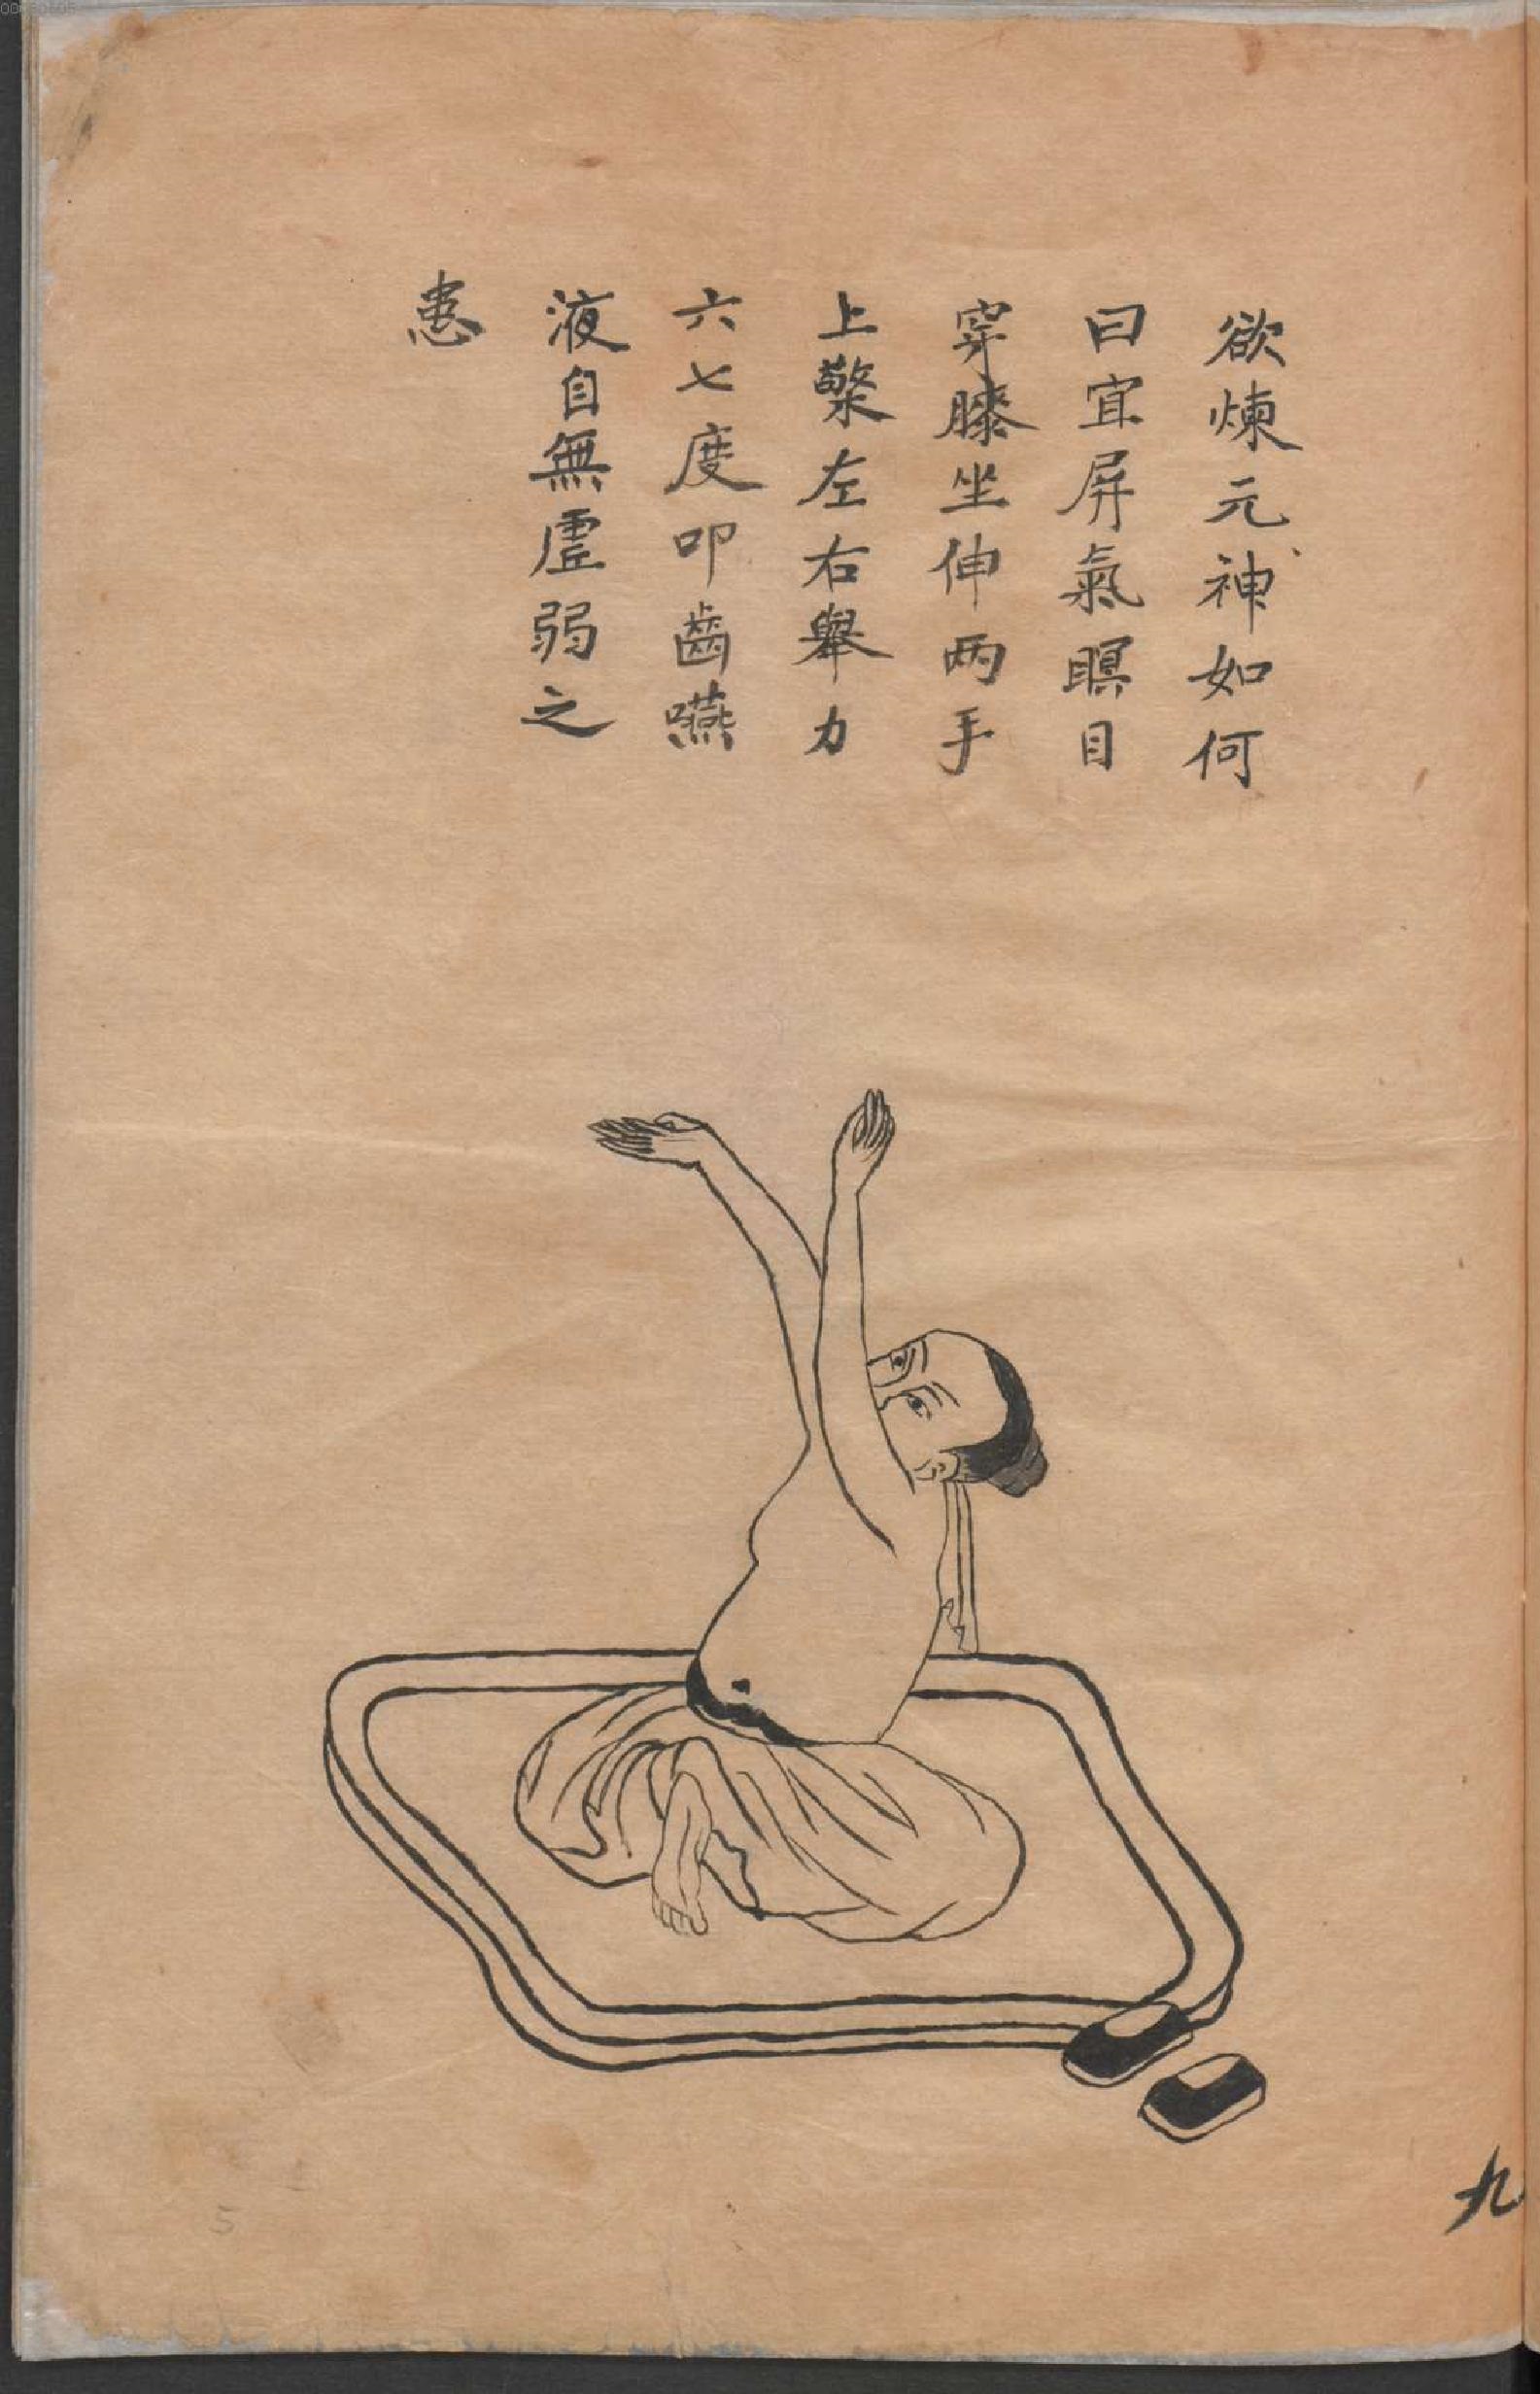 欲煉元神如何
曰宜屏氣瞑目
穿膝坐伸两手
上擎左右舉力
六七度叩齒嚥
液自無虛弱之
患
九
5